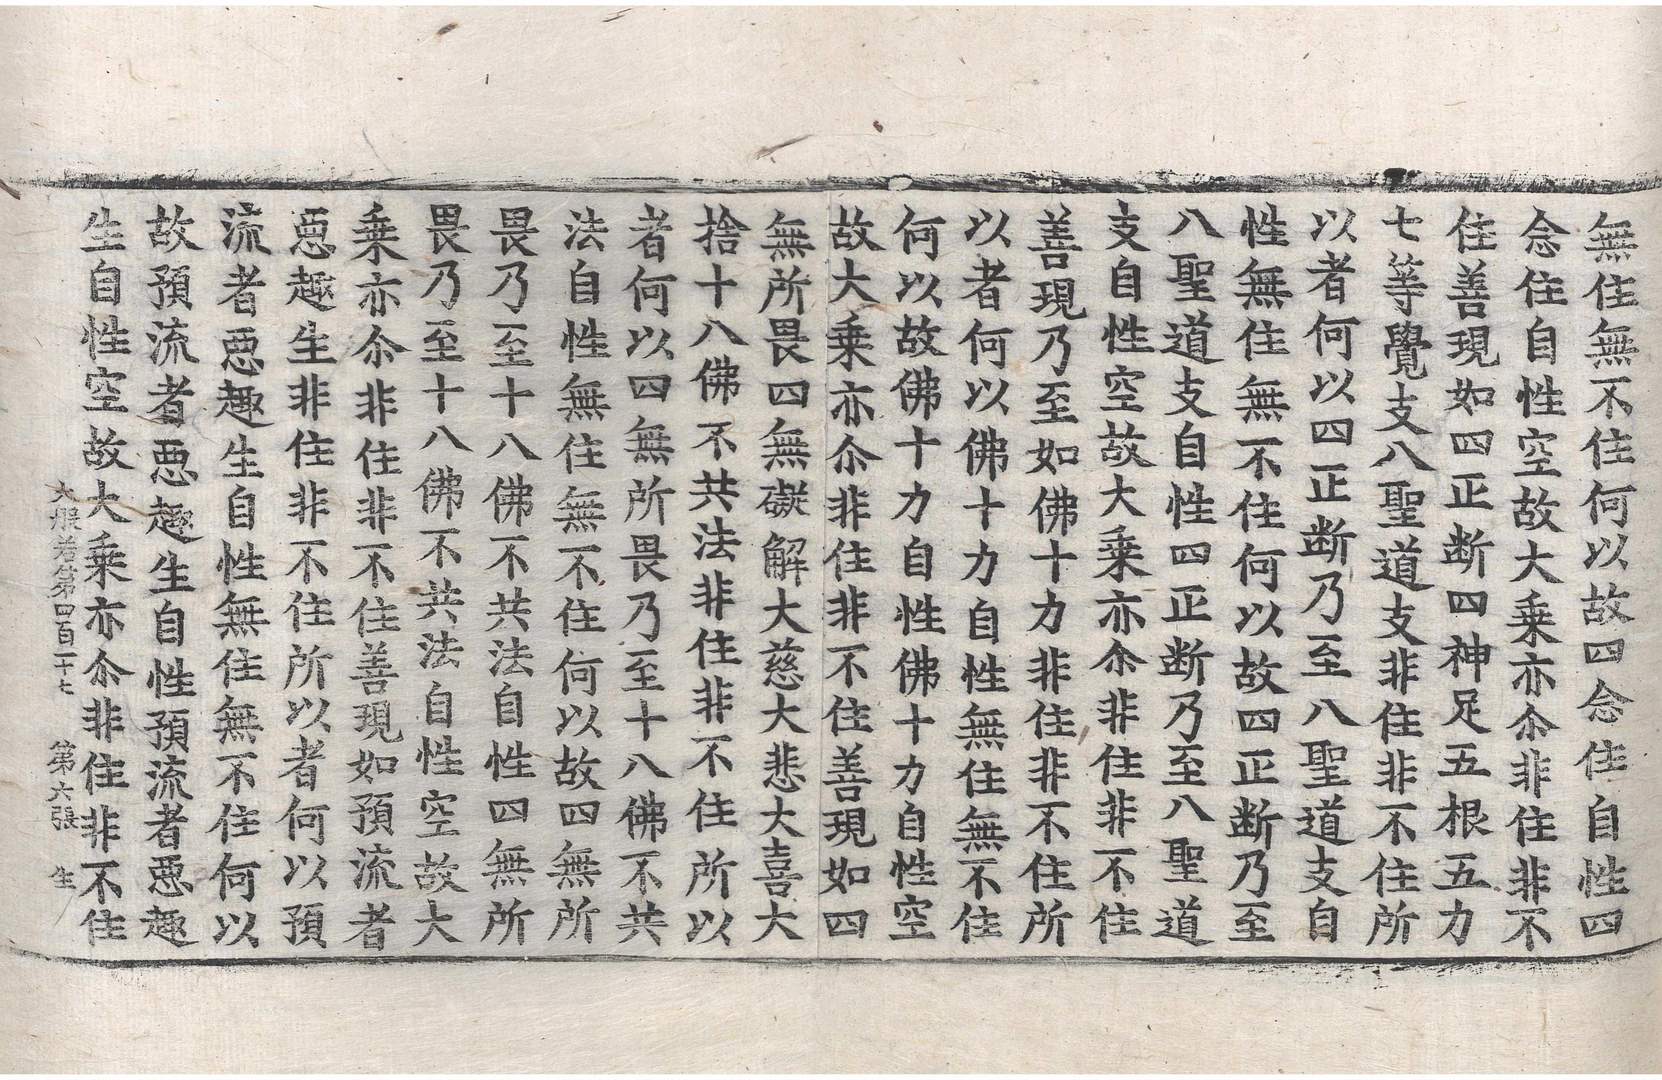 無住無不住何以故四念住自性四
念住自性空故大乗亦尒非住非不
住善現如四正断四神足五根五力
七等覺支八聖道支非住非不住所
以者何以四正断乃至八聖道支自
性無住無不住何以故四正断乃至
八聖道支自性四正断乃至八聖道
支自性空故大乗亦尒非住非不住
善現乃至如佛十力非住非不住所
以者何以佛十力自性無住無不住
何以故佛十力自性佛十力自性空
故大乗亦尒非住非不住善現如四
無所畏四無礙解大慈大悲大喜大
捨十八佛不共法非住非不住所以
者何以四無所畏乃至十八佛不共
法自性無住無不住何以故四無所
畏乃至十八佛不共法自性四無所
畏乃至十八佛不共法自性空故大
乗亦尒非住非不住善現如預流者
惡趣生非住非不住所以者何以預
流者惡趣生自性無住無不住何以
故預流者惡趣生自性預流者惡趣
生自性空故大乗亦尒非住非不住
大般若第四百二十七 第六張 生